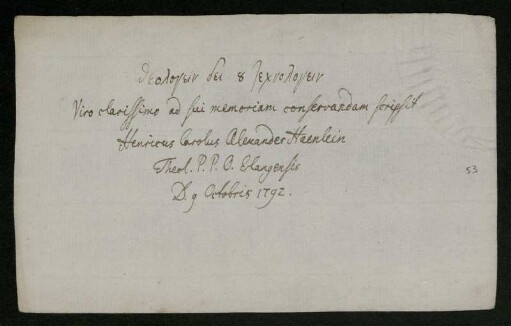 θεολογειν δει ȣ τεχνολογειν
Viro clarissimo ad sui memoriam conservandam scripsit
Henricus Carolus Alexander Haenlein
Theol. P. P. O. Erlangensis
D. 9 Octobris 1792.
53